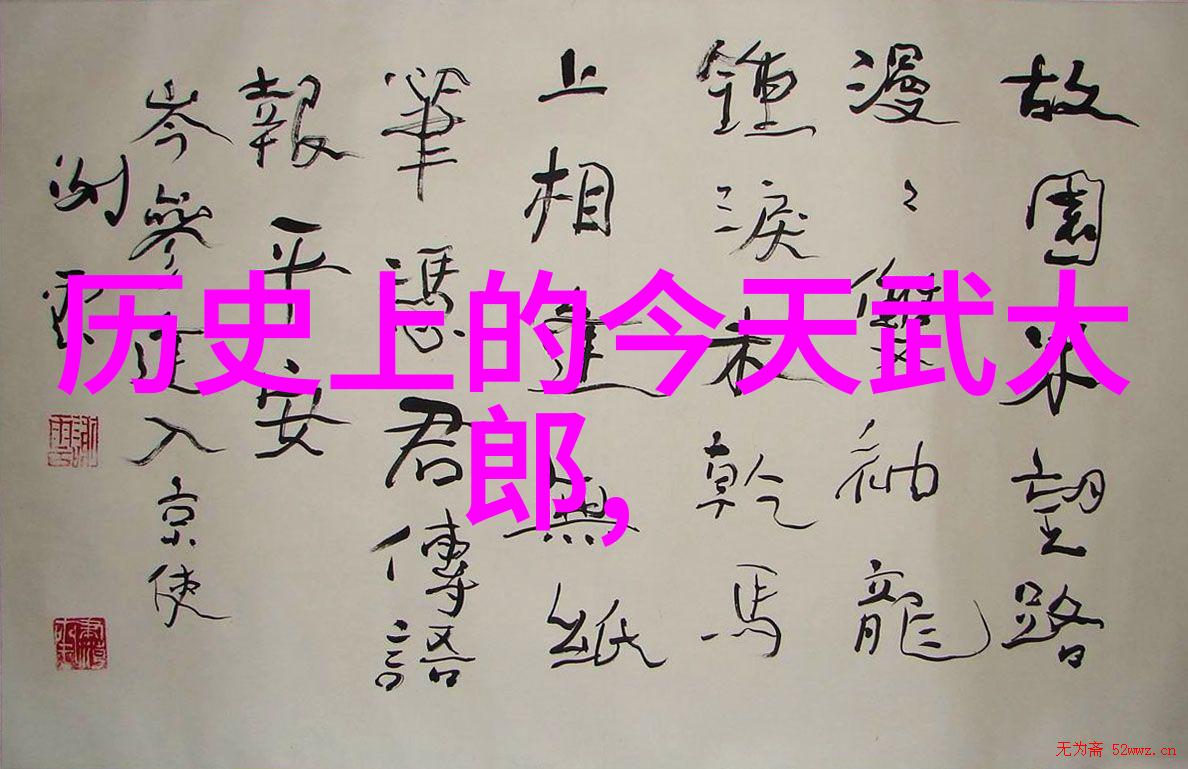 历史上的今天武大
郎,
故園东望路
漫〻雙袖龍
鍾淚未乾馬
上相逢無紙
筆憑君傳語
報平安
岑參逢入京使
无为斋 52wwz.cn